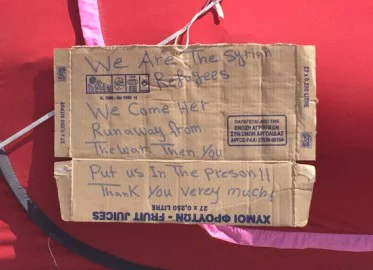 We Are The Syrian
Refugees
We Come Her
Runaway from
The war. Then You
Put us In The preson!!
Thank You verey much!
ΠΑΡΑΓΕΤΑΙ ΑΠΟ ΤΗΝ
ΕΝΩΣΗ ΑΓΡΟΤΙΚΩΝ
ΣΥΝ/ΣΜΩΝ ΑΡΓΟΛΙΔΑΣ
27 x 0,250 LITRE
27 x 0,250 LITRE
ΧΥΜΟΙ ΦΡΟΥΤΩΝ - FRUIT JUICES